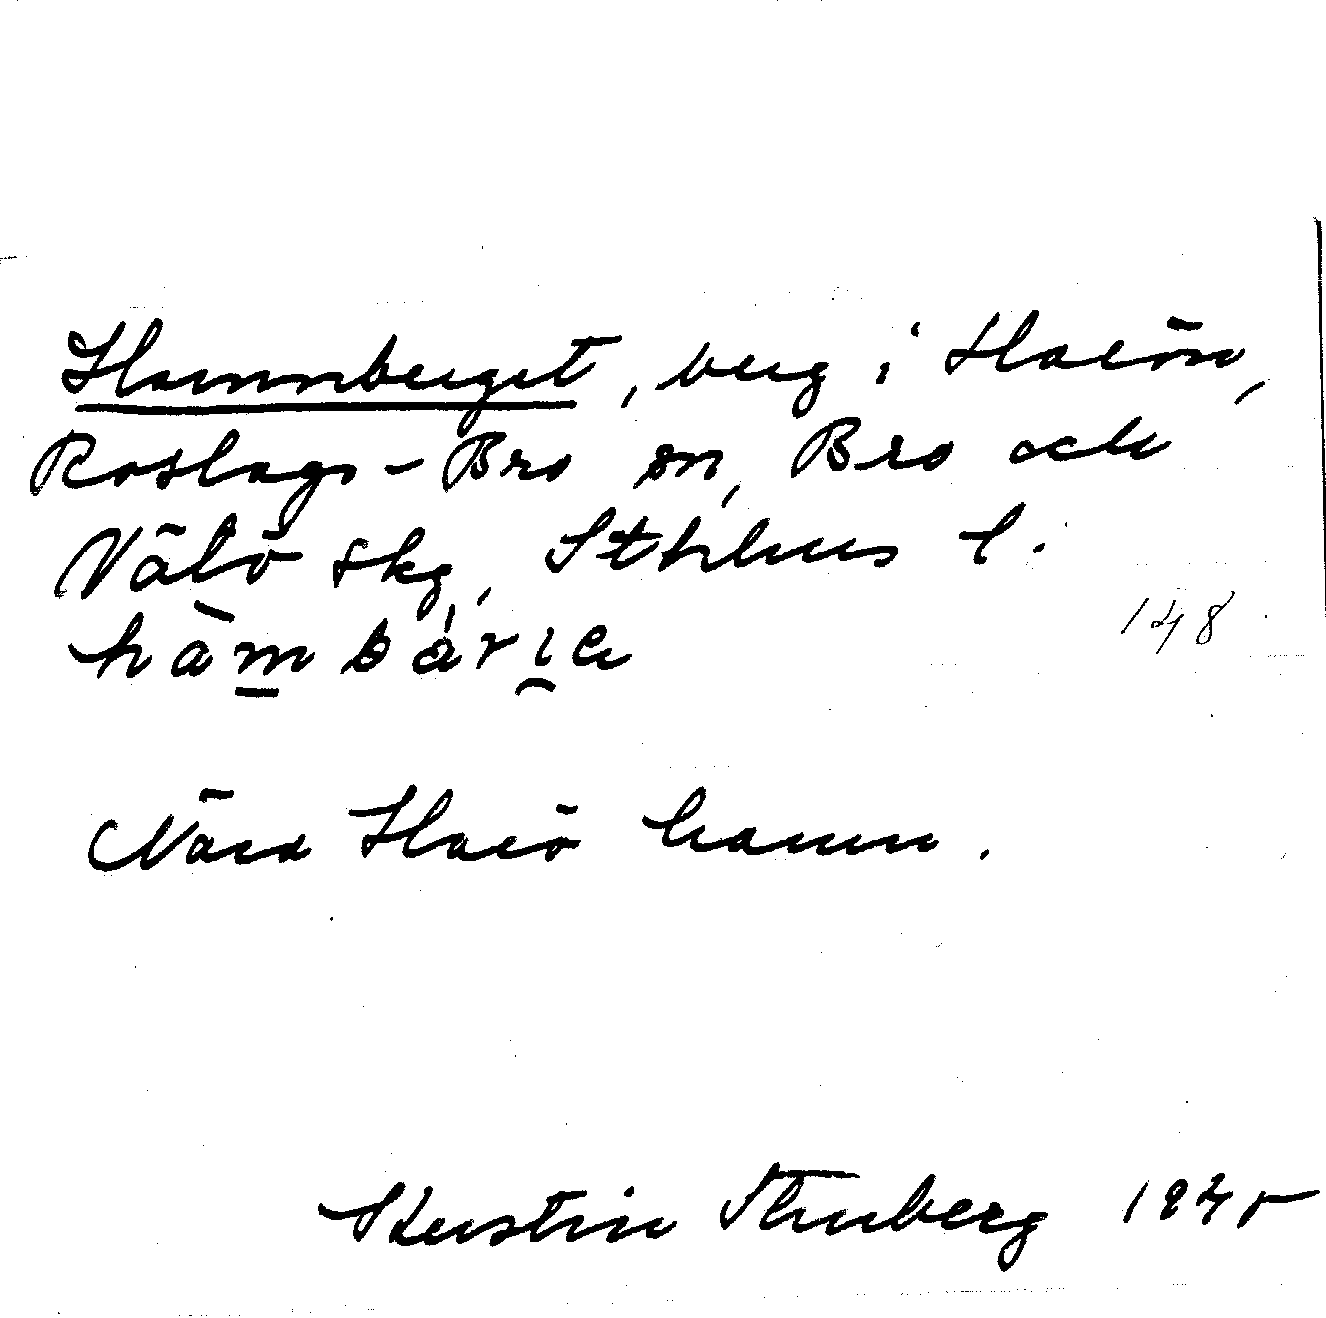 Hamnberget, berg i Haiön,
Roslags-Bro sn, Bro och
Vätö skg, Sthlms l.
148
Nära Haiö hamn.
Kerstin Thuberg 1945